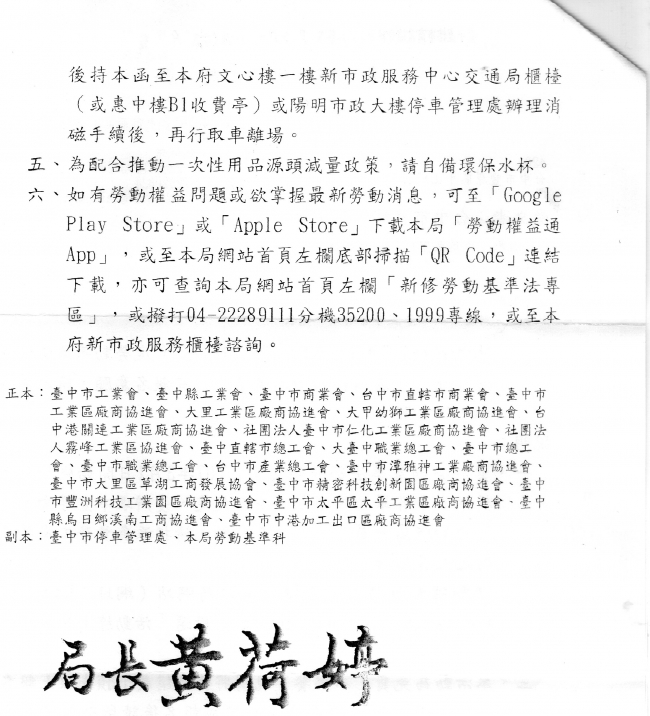 後持本函至本府文心樓一樓新市政服務中心交通局櫃檯
（或惠中樓B1收費亭）或陽明市政大樓停車管理處辦理消
磁手續後，再行取車離場。
五、為配合推動一次性用品源頭減量政策，請自備環保水杯。
六、如有勞動權益問題或欲掌握最新勞動消息，可至「Google
Play Store」或「Apple Store」下載本局「勞動權益通
App」，或至本局網站首頁左欄底部掃描「QR Code」連結
下載，亦可查詢本局網站首頁左欄「新修勞動基準法專
區」，或撥打04-22289111分機35200、1999專線，或至本
府新市政服務櫃檯諮詢。
正本：臺中市工業會、臺中縣工業會、臺中市商業會、台中市直轄市商業會、臺中市
工業區廠商協進會、大里工業區廠商協進會、大甲幼獅工業區廠商協進會、台
中港關連工業區廠商協進會、社團法人臺中市仁化工業區廠商協進會、社團法
人霧峰工業區協進會、臺中直轄市總工會、大臺中職業總工會、臺中市總工
會、臺中市職業總工會、台中市產業總工會、臺中市潭雅神工業廠商協進會、
臺中市大里區草湖工商發展協會、臺中市精密科技創新園區廠商協進會、臺中
市豐洲科技工業園區廠商協進會、臺中市太平區太平工業區廠商協進會、臺中
縣烏日鄉溪南工商協進會、臺中市中港加工出口區廠商協進會
副本：臺中市停車管理處、本局勞動基準科
局長黃荷婷